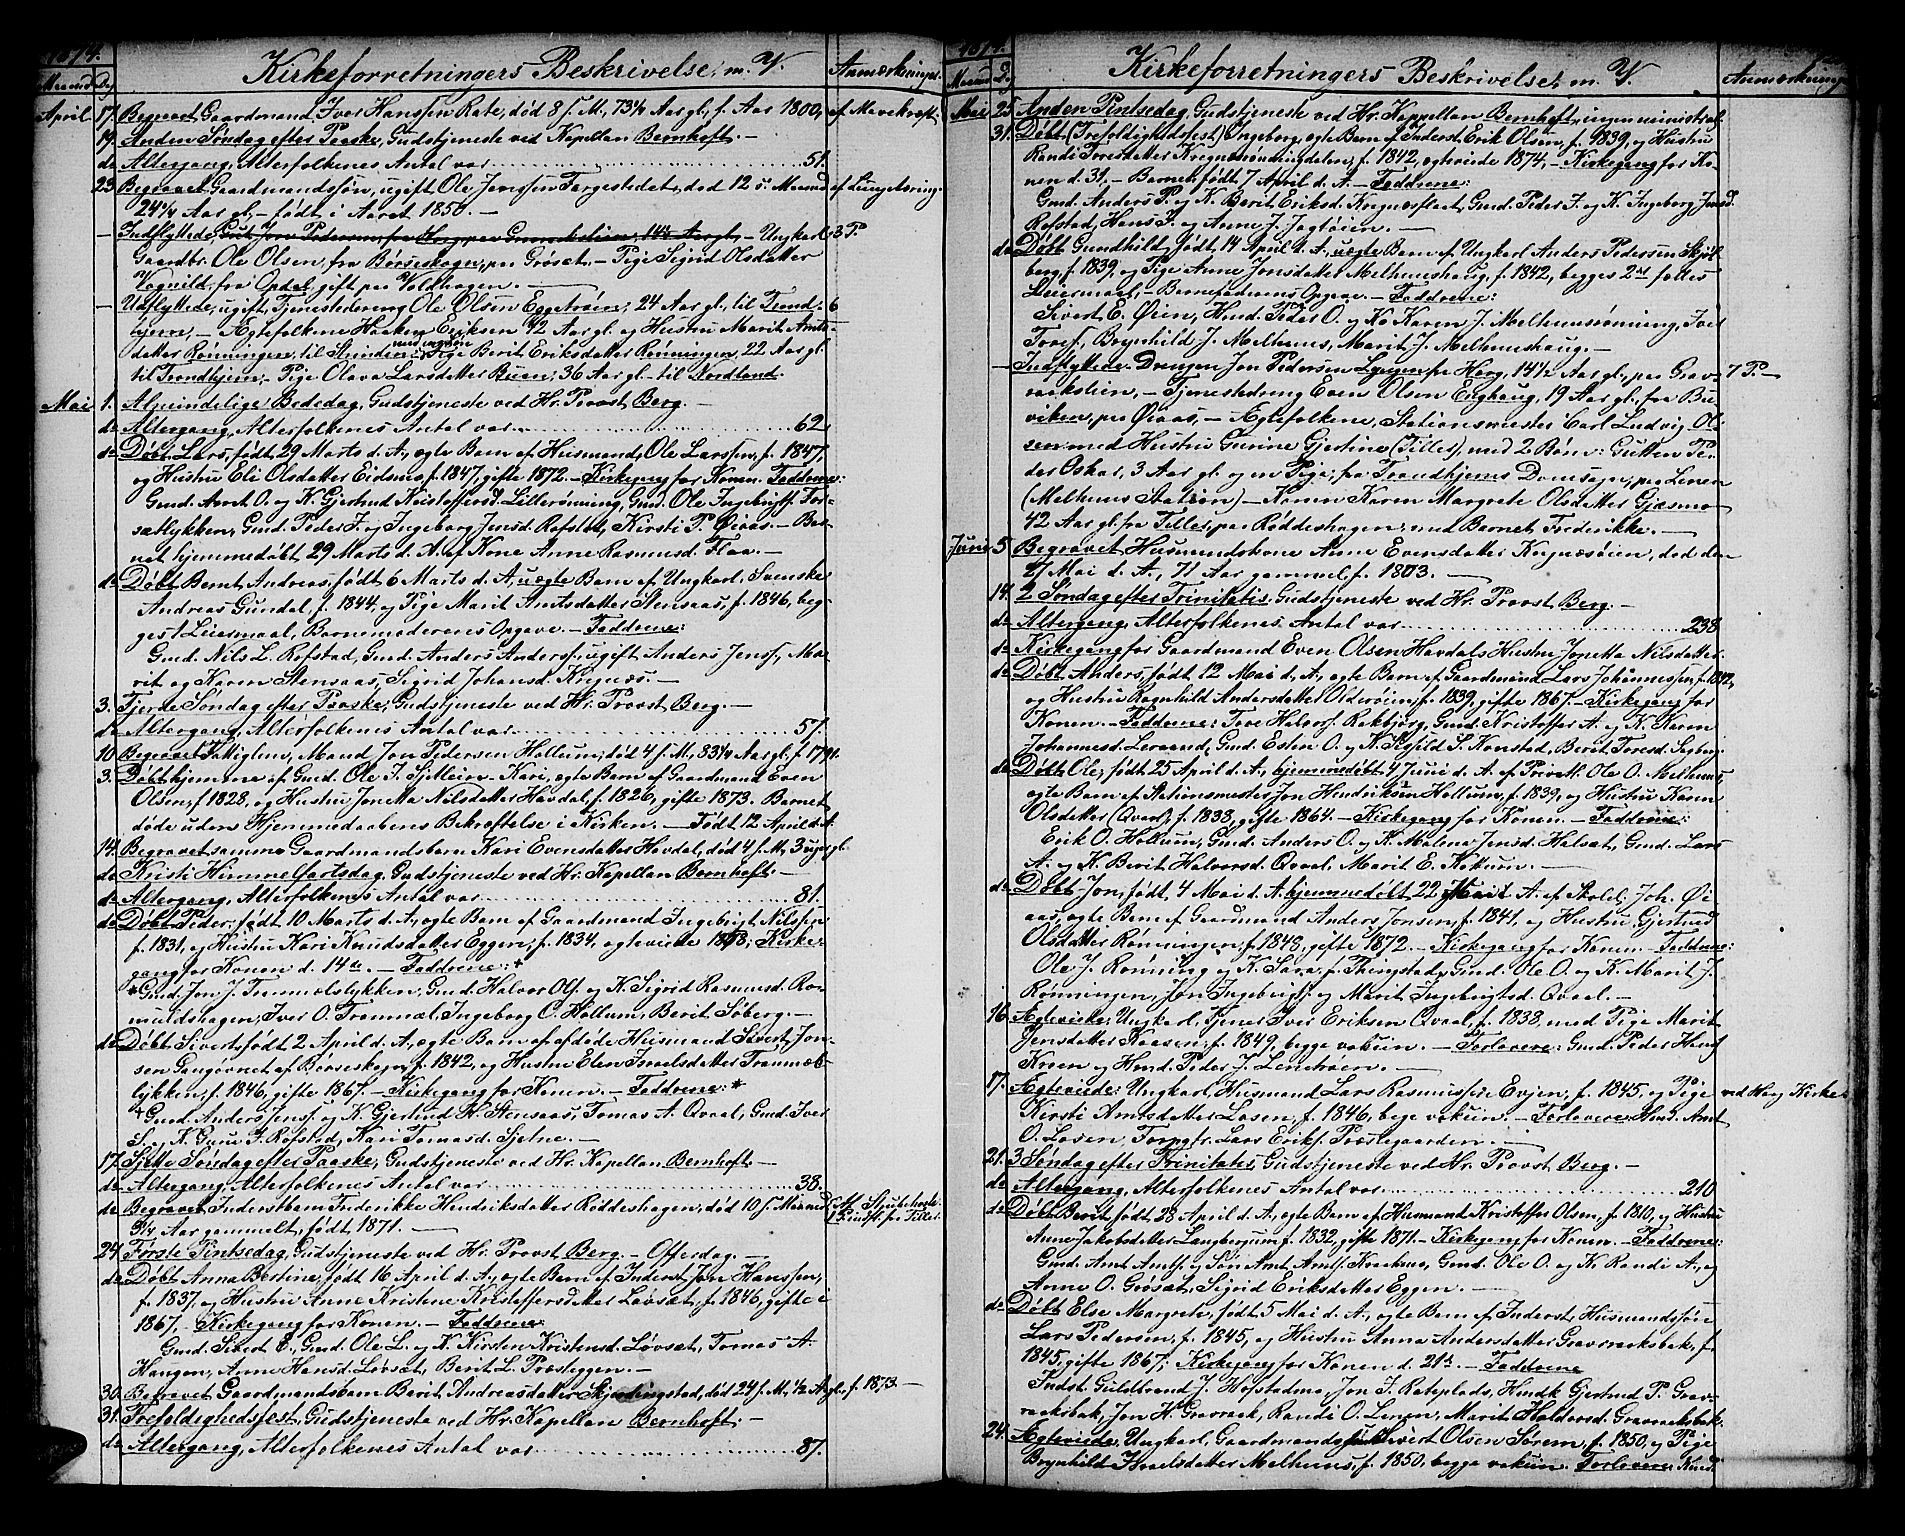 1874. Kirkeforretningers Beskrivelse m. V. Anmærkninger
Maaned Dg
April 17. Begravet Gaardmand Iver Hanssen Rate, død 8 s. M., 73¼ Aar gl., f. Aar 1800, af Mavekræft.
19. Anden Søndag efter Paaske, Gudstjeneste ved Kapellan Bernhoft. —
do Altergang, Alterfolkenes Antal var 51.
23 Begravet Gaardmandssøn, ugift Ole Jenssen Fargestedet, død 12 s. Maaned af Lungetæring.
24¼ Aar gl., — født i Aaret 1850. —
— Indflyttede, Ungkarl 3 P.
Gaardbr. Ole Olsen, fra Børseskogn, pr Grøset. — Pige Sigrid Olsdatter
Vognild, fra Opdal, gift paa Voldhagen. —
— Udflyttede, ugift Tjenestedreng Ole Olsen Eggetrøen, 24 Aar gl., til Trond- 6
hjem, — Ægtefolkene Haaken Eriksen 42 Aar gl. og Hustru Marit Arnts-
datter Rønningen, til Strinden; Pige Berit Eriksdatter Rønningen, 22 Aar gl.
til Trondhjem, — Pige Olava Larsdatter Buen, 36 Aar gl. til Nordland.
Mai 1. Almindelige Bededag, Gudstjeneste ved Hr. Provst Berg. —
do Altergang, Alterfolkenes Antal var 62.
do Døbt Lars, født 29 Marts d. A., ægte Barn af Husmand, Ole Larssen, f. 1847,
og Hustru Eli Olsdatter Eidsmo f. 1847, gifte 1872. — Kirkegang for Konen. Faddrene:
Gmd. Arnt O. og K. Gjertrud Kristoffersd. Lillerønning, Gmd. Ole Ingebrigts. For-
sætlykken, Gmd. Peder J. og Ingeborg Jensd. Rofstad, Kirsti P. Øiaas. — Bar-
net hjemmedøbt 29 Marts d. A. af Kone Anne Rasmusd. Flaa. —
do Døbt Bernt Andreas, født 6 Marts d. A., uægte Barn af Ungkarl, Svenske
Andreas Gundel, f. 1844, og Pige Marit Arntsdatter Stensaas, f. 1846, beg-
ges 1 Leiermaal, Barnemoderens Opgave. — Faddrene:
Gmd. Nils L. Rofstad, Gmd. Anders Anderss., ugift Anders Jenss., Ma-
rit og Karen Stensaas, Sigrid Johansd. Kregnæs. —
3. Tjerde Søndag efter Paaske, Gudstjeneste ved Hr. Provst Berg. —
do Altergang, Alterfolkenes Antal var 57.
10 Begravet Fattiglem, Mand Jon Pedersen Hollum, død 4 s. M., 83¼ Aar gl., f. 1791.
3. Døbt hjemme af Gmd. Ole J. — Kari, ægte Barn af Gaardmand Even
Olsen, f. 1828, og Hustru Jonetta Nilsdatter Havdal, f. 1826, gifte 1873. Barnet
døde uden Hjemmedaabens Bekræftelse i Kirken. — Født 12 April d. A.
14. Begravet samme Gaardmandsbarn Kari Evensdatter Havdal, død 4 s. M., 3 uger gl.
do Kristi Himmelfartsdag, Gudstjeneste ved Hr. Kapellan Bernhoft. —
do Altergang, Alterfolkenes Antal var 81.
do Døbt Peder, født 10 Marts d. A., ægte Barn af Gaardmand Ingebrigt Nilssen
f. 1831, og Hustru Kari Knudsdatter Eggen, f. 1834, ægteviede 1858; Kirke-
gang for Konen d. 14de. — Faddrene: *
* Gmd. Jon J. Tranmælslykken, Gmd. Halvor Ols. og K. Sigrid Rasmusd. Ro-
muldshagen, Iver O. Tranmæl, Ingeborg O. Hollum, Berit Søberg. —
do Døbt Sivert, født 2 April d. A., ægte Barn af afdøde Husmand Sivert Jon-
sen Gangøvnet af Børseskogn, f. 1842, og Hustru Elen Israelsdatter Tranmæls-
lykken, f. 1846, gifte 1867. — Kirkegang for Konen. — Faddrene: *
* Gmd. Anders Jenss. og K. Gjertrud H. Stensaas, Tomas A. Qvaal, Gmd. Iver
S. og K. Guru J. Rofstad, Kari Tomasd. Sjetne. —
17. Sjette Søndag efter Paaske, Gudstjeneste ved Hr. Kapellan Bernhoft —
do Altergang, Alterfolkenes Antal var 38.
do Begravet Inderstbarn Frederikke Hendriksdatter Røddeshagen, død 10 s. Maaned (M. Strubehoste.
3¼ Aar gammelt, født 1871. — Indfl. fra Tiller.
24. Første Pintsedag, Gudstjeneste ved Hr. Provst Berg. — Offerdag. —
do Døbt Anna Bertine, født 16 April d. A., ægte Barn af Inderst Jon Hanssen,
f. 1837, og Hustru Anne Kristine Kristoffersdatter Løvset, f. 1846, gifte i
1867. Kirkegang for Konen. — Faddrene:
Gmd. Sivert E., Gmd. Ole L. og K. Kirsten Kristensd. Løvsæt, Tomas A.
Haugen, Anne Hansd. Løvsæt, Berit L. Præsteggen. —
30. Begravet Gaardmandsbarn Berit Andreasdatter Skjerdingstad, død 24 s. M., ½ A. gl., f. 1873. —
31. Trefoldighedsfest, Gudstjeneste ved Hr. Kapellan Bernhoft. —
do Altergang, Alterfolkenes Antal var 87.
1874. Kirkeforretningers Beskrivelse m. V. Anmærkninger
Maaned Dg
Mai 25. Anden Pintsedag, Gudstjeneste ved Hr. Kappellan Bernhoft, ingen ministrial.
31. Døbt (Trefoldighedsfest) Ingeborg, ægte Barn af Inderst Erik Olsen, f. 1839, og Hustru
Randi Toresdatter Kregnæsmoingdalen, f. 1842, ægteviede 1874. — Kirkegang for Ko-
nen d. 31. — Barnet født 7 April d. A. — Faddrene:
Gmd. Anders P. og K. Berit Eriksd. Kregnæsflaat, Gmd. Peder J. og K. Ingeborg Jensd.
Rofstad, Hans J. og Anne J. Jagtøien. —
do Døbt Gundhild, født 14 April d. A., uægte Barn af Ungkarl Anders Pedersen Skjøl-
berg, f. 1839, og Pige Anne Jonsdatter Melhuushaug, f. 1842, begges 2det falds
Leiermaal, — Barnefaderens Opgave. — Faddrene:
Sivert E. Øien, Husmd. Peder O. og Ko Karen J. Melhuusrønning, Iver
Tores., Brynhild J. Melhuus, Marit J. Melhuushaug. —
— Indflyttede. Drengen Jon Pedersen Lyngen fra Horg, 14½ Aar gl., paa Grav- 7 P. —
rackslien, — Tjenestedreng Even Olsen Enghaug, 19 Aar gl., fra Bu-
viken, paa Øiaas, — Ægtefolkene, Stationsmester Carl Ludvig Ol-
sen med Hustru Gurine Gjertine (Tiller), med 2 Børn: Gutten Pe-
der Oskar, 3 Aar gl. og en Pige, fra Trondhjems Domsogn, paa Lenen
(Melhuus Station) — Konen Karen Margrete Olsdatter Gjæsmo
42 Aar gl. fra Tiller, paa Røddeshagen, med Barnet Frederikke. —
Juni 5 Begravet Husmandskone Anne Evensdatter Kregnæsøien, død den
27 Mai d. A., 71 Aar gammel, f. 1803. —
14. 2 Søndag efter Trinitatis. Gudstjeneste ved Hr. Provst Berg. —
do Altergang, Alterfolkenes Antal var 238
do Kirkegang for Gaardmand Even Olsen Havdals Hustru Jonetta Nilsdatter.
do Døbt Anders, født 12 Mai d. A., ægte Barn af Gaardmand Lars Johannessen, f. 1842,
og Hustru Ragnhild Andersdatter Olderøien, f. 1839, gifte 1867. — Kirkegang for
Konen. — Faddrene: Tore Halvors. Rakbjørg, Gmd. Kristoffer A. og K. Karen
Johannesd. Leraand, Gmd. Esten O. og K. Sisild S. Konstad, Berit Toresd. Søberg.
do Døbt Ole, født 25 April d. A., hjemmedøbt 1 Juni d. A. af Privatl. Ole O. Melhuus,
ægte Barn af Stationsmester Jon Hendriksen Hollum, f. 1839, og Hustru Karen
Olsdatter (Qvaal), f. 1838, gifte 1864. — Kirkegang for Konen. — Faddrene:
Erik O. Hollum, Gmd. Anders O. og K. Malena Jensd. Halset, Gmd. Lars
A. og K. Berit Halvorsd. Qvaal, Marit E. Nokum. —
do Døbt Jon, født 4 Mai d. A. hjemmedøbt 22 Mai d. A. af Skolel. Joh. Øi-
aas, ægte Barn af Gaardmand Anders Jonsen, f. 1841, og Hustru Gjertrud
Olsdatter Rønningen, f. 1848, gifte 1872. — Kirkegang for Konen. — Faddrene:
Ole J. Rønning og K. Sara, f. Thingstad, Gmd. Ole O. og K. Marit J.
Rønningen, Jon Ingebrigts. og Marit Ingebrigtsd. Qvaal. —
16. Ægteviede: Ungkarl, Tjener Iver Eriksen Qvaal, f. 1838, med Pige Marit
Jensdatter Raaseen, f. 1849, begge vakcin. — Forlovere: Gmd. Peder Hans.
Kroen og Husmd. Peder J. Lenetrøen. —
17. Ægteviede: Ungkarl, Husmand Lars Rasmussen Evjen, f. 1845, og Pige ved Horg Kirke.
Kirsti Arntsdatter Losen, f. 1846, bege vakcin. — Forlovere: Husmd. Arnt
O. Losen, Forpgtr. Lars Eriks. Præstegaarden. —
21. 3 Søndag efter Trinitatis, Gudstjeneste ved Hr. Provst Berg. —
do Altergang, Alterfolkenes Antal var 210
do Døbt Berit, født 28 April d. A., ægte Barn af Husmand Kristoffer Olsen, f. 1810, og Hustru
Anne Jakobsdatter Langbergum f. 1832, gifte 1871. — Kirkegang for Konen. — Faddrene:
Gmd. Arnt Arnts. og Søn Arnt Arnts. Kroghaug, Gmd. Ole O. og K. Randi A., og
Anne O. Grøsæt, Sigrid Eriksdatter Eggen. —
do Døbt Else Margrete, født 5 Mai d. A., ægte Barn af Inderst, Husmandssøn
Lars Pedersen, f. 1845, og Hustru Anna Andersdatter Gravraaksbak, f.
1845, gifte 1867; Kirkegang for Konen d. 21de. — Faddrene
Indst. Guldbrand J. Hofstadmo, Jon J. Rateplads, Husmdk. Gjertrud P. Grav-
raaksbak, Jon H. Gravraak, Randi O. Lenen, Marit Haldorsd. Gravraaksbak.
24. Ægteviede: Ungkarl, Gaardmandssøn Sivert Olsen Sørem, f. 1850, og Pige
Brynhild Israelsdatter Melhuus, f. 1850, begge vakcin. Forlovere: Husmd.